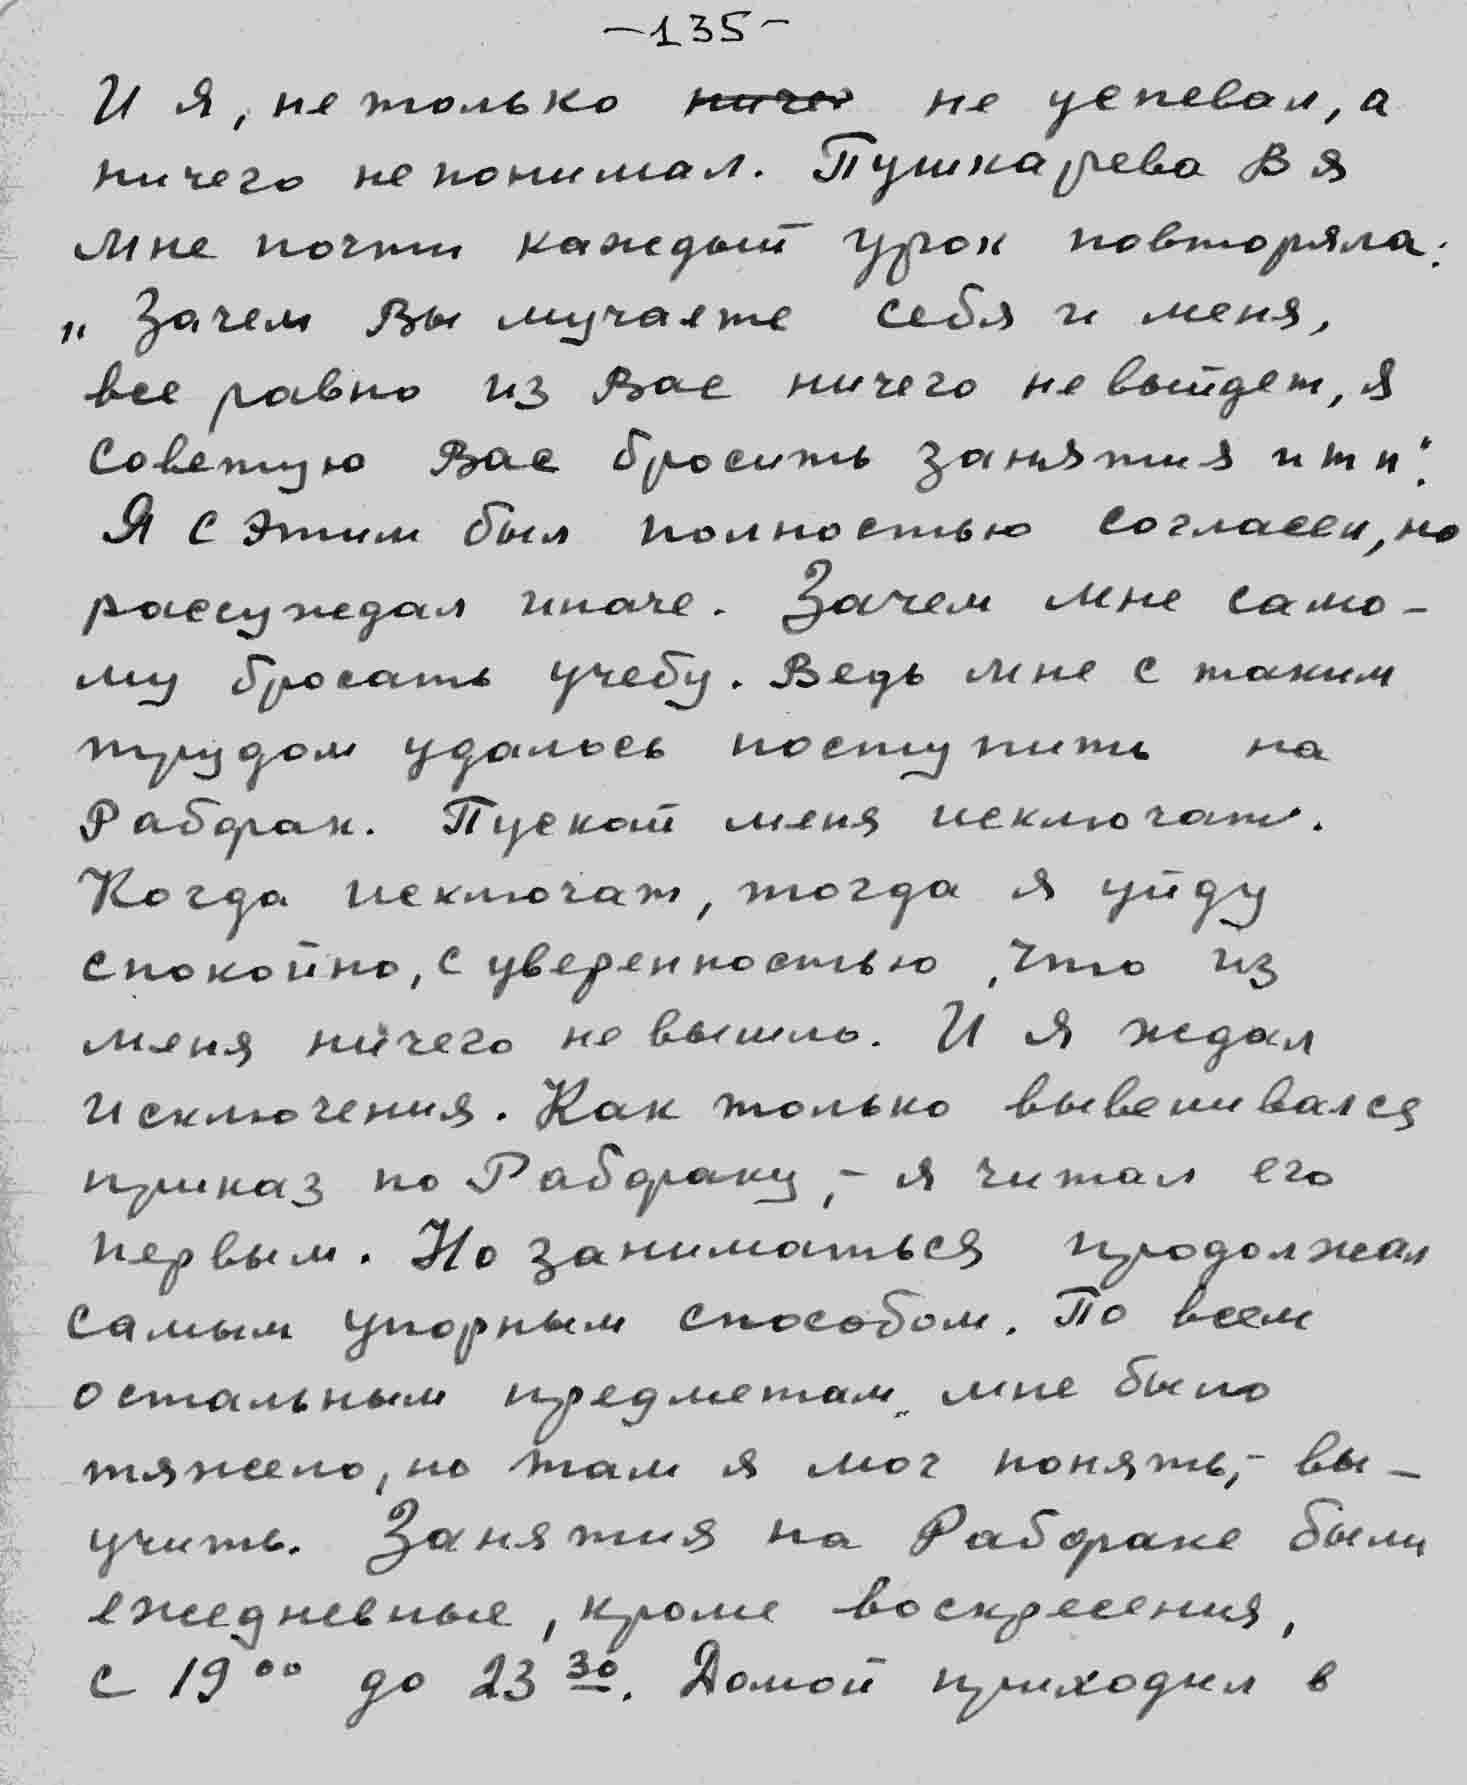 -135-
И я, не только ничег не успевал, а
ничего не понимал. Пушкарева В Я
мне почти каждый урок повторяла:
„Зачем Вы мучаете себя и меня,
все равно из Вас ничего не выйдет, я
советую Вас бросить занятия и т п".
Я с этим был полностью согласен, но
рассуждал иначе. Зачем мне само-
му бросать учебу. Ведь мне с таким
трудом удалось поступить на
Рабфак. Пускай меня исключат.
Когда исключат, тогда я уйду
спокойно, с уверенностью, что из
меня ничего не вышло. И я ждал
исключения. Как только вывешивался
приказ по Рабфаку, - я читал его
первым. Но заниматься продолжал
самым упорным способом. По всем
остальным предметам мне было
тяжело, но там я мог понять, - вы-
учить. Занятия на Рабфаке были
ежедневные, кроме воскресения,
с 19⁰⁰ до 23³⁰. Домой приходил в